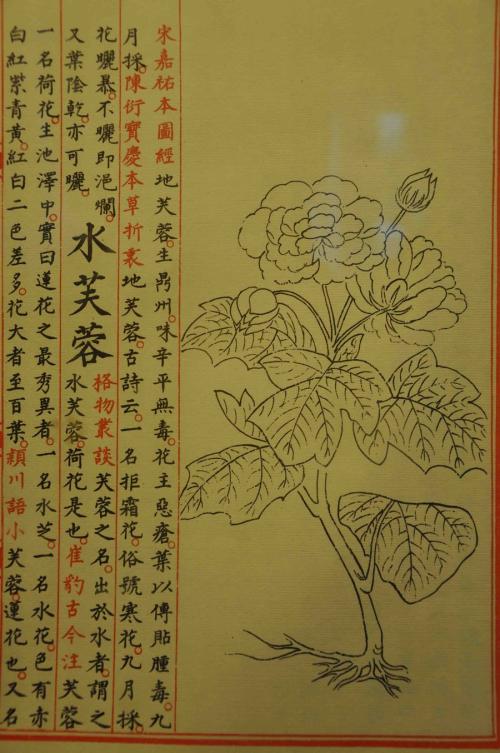 宋嘉祐本圖經地芙蓉。生鼎州。味辛平無毒。花主惡瘡。葉以傅貼腫毒。九
月採。陳衍寶慶本草折衷地芙蓉。古詩云。一名拒霜花。俗號寒花。九月採。
花曬暴。不曬即浥爛。
又葉陰乾。亦可曬。
水芙蓉
格物叢談芙蓉之名。出於水者。謂之
水芙蓉。荷花是也。崔豹古今注芙蓉
一名荷花。生池澤中。實曰蓮花之最秀異者。一名水芝。一名水花。色有赤
白紅紫青黃。紅白二色差多。花大者至百葉。潁川語小芙蓉。蓮花也。又名